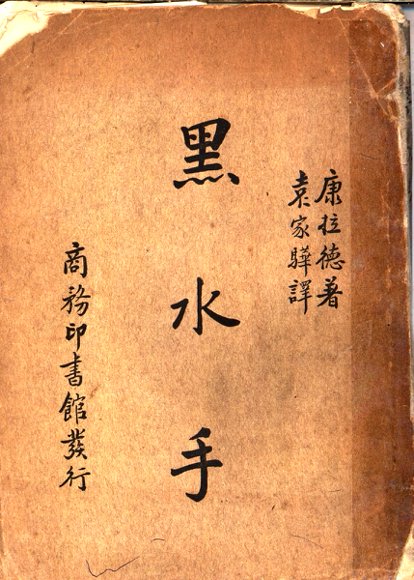 康拉德著
袁家驊譯
黑水手
商務印書館發行